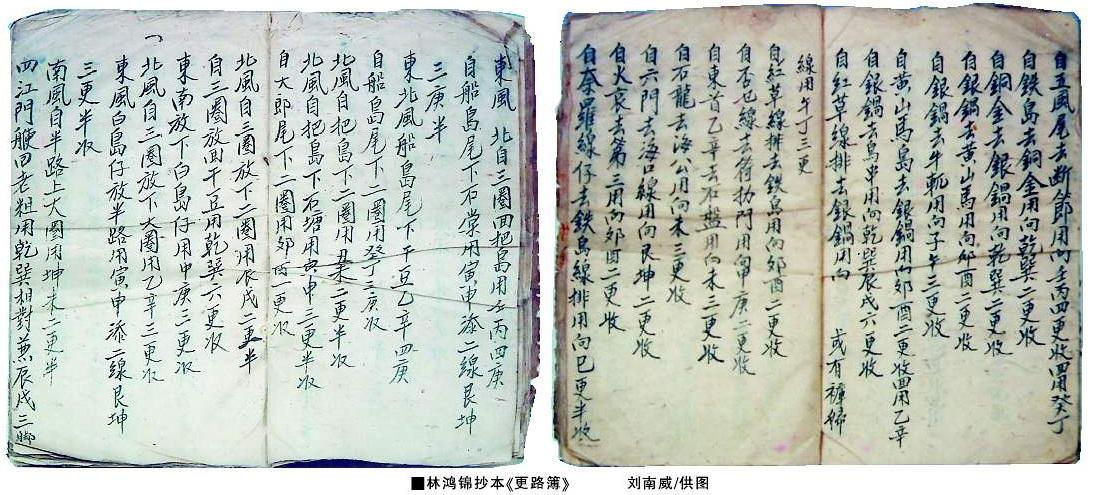 自五風尾去断節用向壬丙四更收回用癸丁
自鉄島去銅金用向乾巽二更收
自銅金去銀鍋用向乾巽二更收
自銀鍋去黄山馬用向卯酉二更收
自銀鍋去牛軛用向子午三更收
自黄山馬島去銀鍋用向卯酉二更收回用乙辛
自銀鍋去鳥串用向乾巽辰戌六更收
自紅草線排去銀鍋用向 或有褲歸
線用午丁三更
自紅草線排去鉄島用向卯酉二更收
自否也線去符勃門用向申庚二更收
自東首乙辛去石盤用向未三更收
自石龍去海公用向未三更收
自六門去海口線用向艮坤二更收
自火哀去第三用向卯酉二更收
自奈羅線仔去鉄島線排用向巳更半收
東風 北自三圈回把島用壬丙四庚
自船島尾下石棠用寅申添二線艮坤
三庚半
東北風船島尾下干豆乙辛四庚
自船島尾下二圈用癸丁三庚收
北風自把島下二圈用 二更半收
北風自把島下石塘用寅申三更半收
自大郎尾下二圈用卯酉一更收
北風自三圈放下二圈用辰戌二更半
自三圈放回干豆用乾巽六更收
東南放下白島仔用申庚三更收
北風自三圈放下大圈用乙辛三更收
東風白島仔放半路用寅申添二線艮坤
三更半收
南風自半路上大圈用坤未二更半
四江門艘回老粗用乾巽相對兼辰戌三
■林鸿锦抄本《更路簿》 刘南威/供图